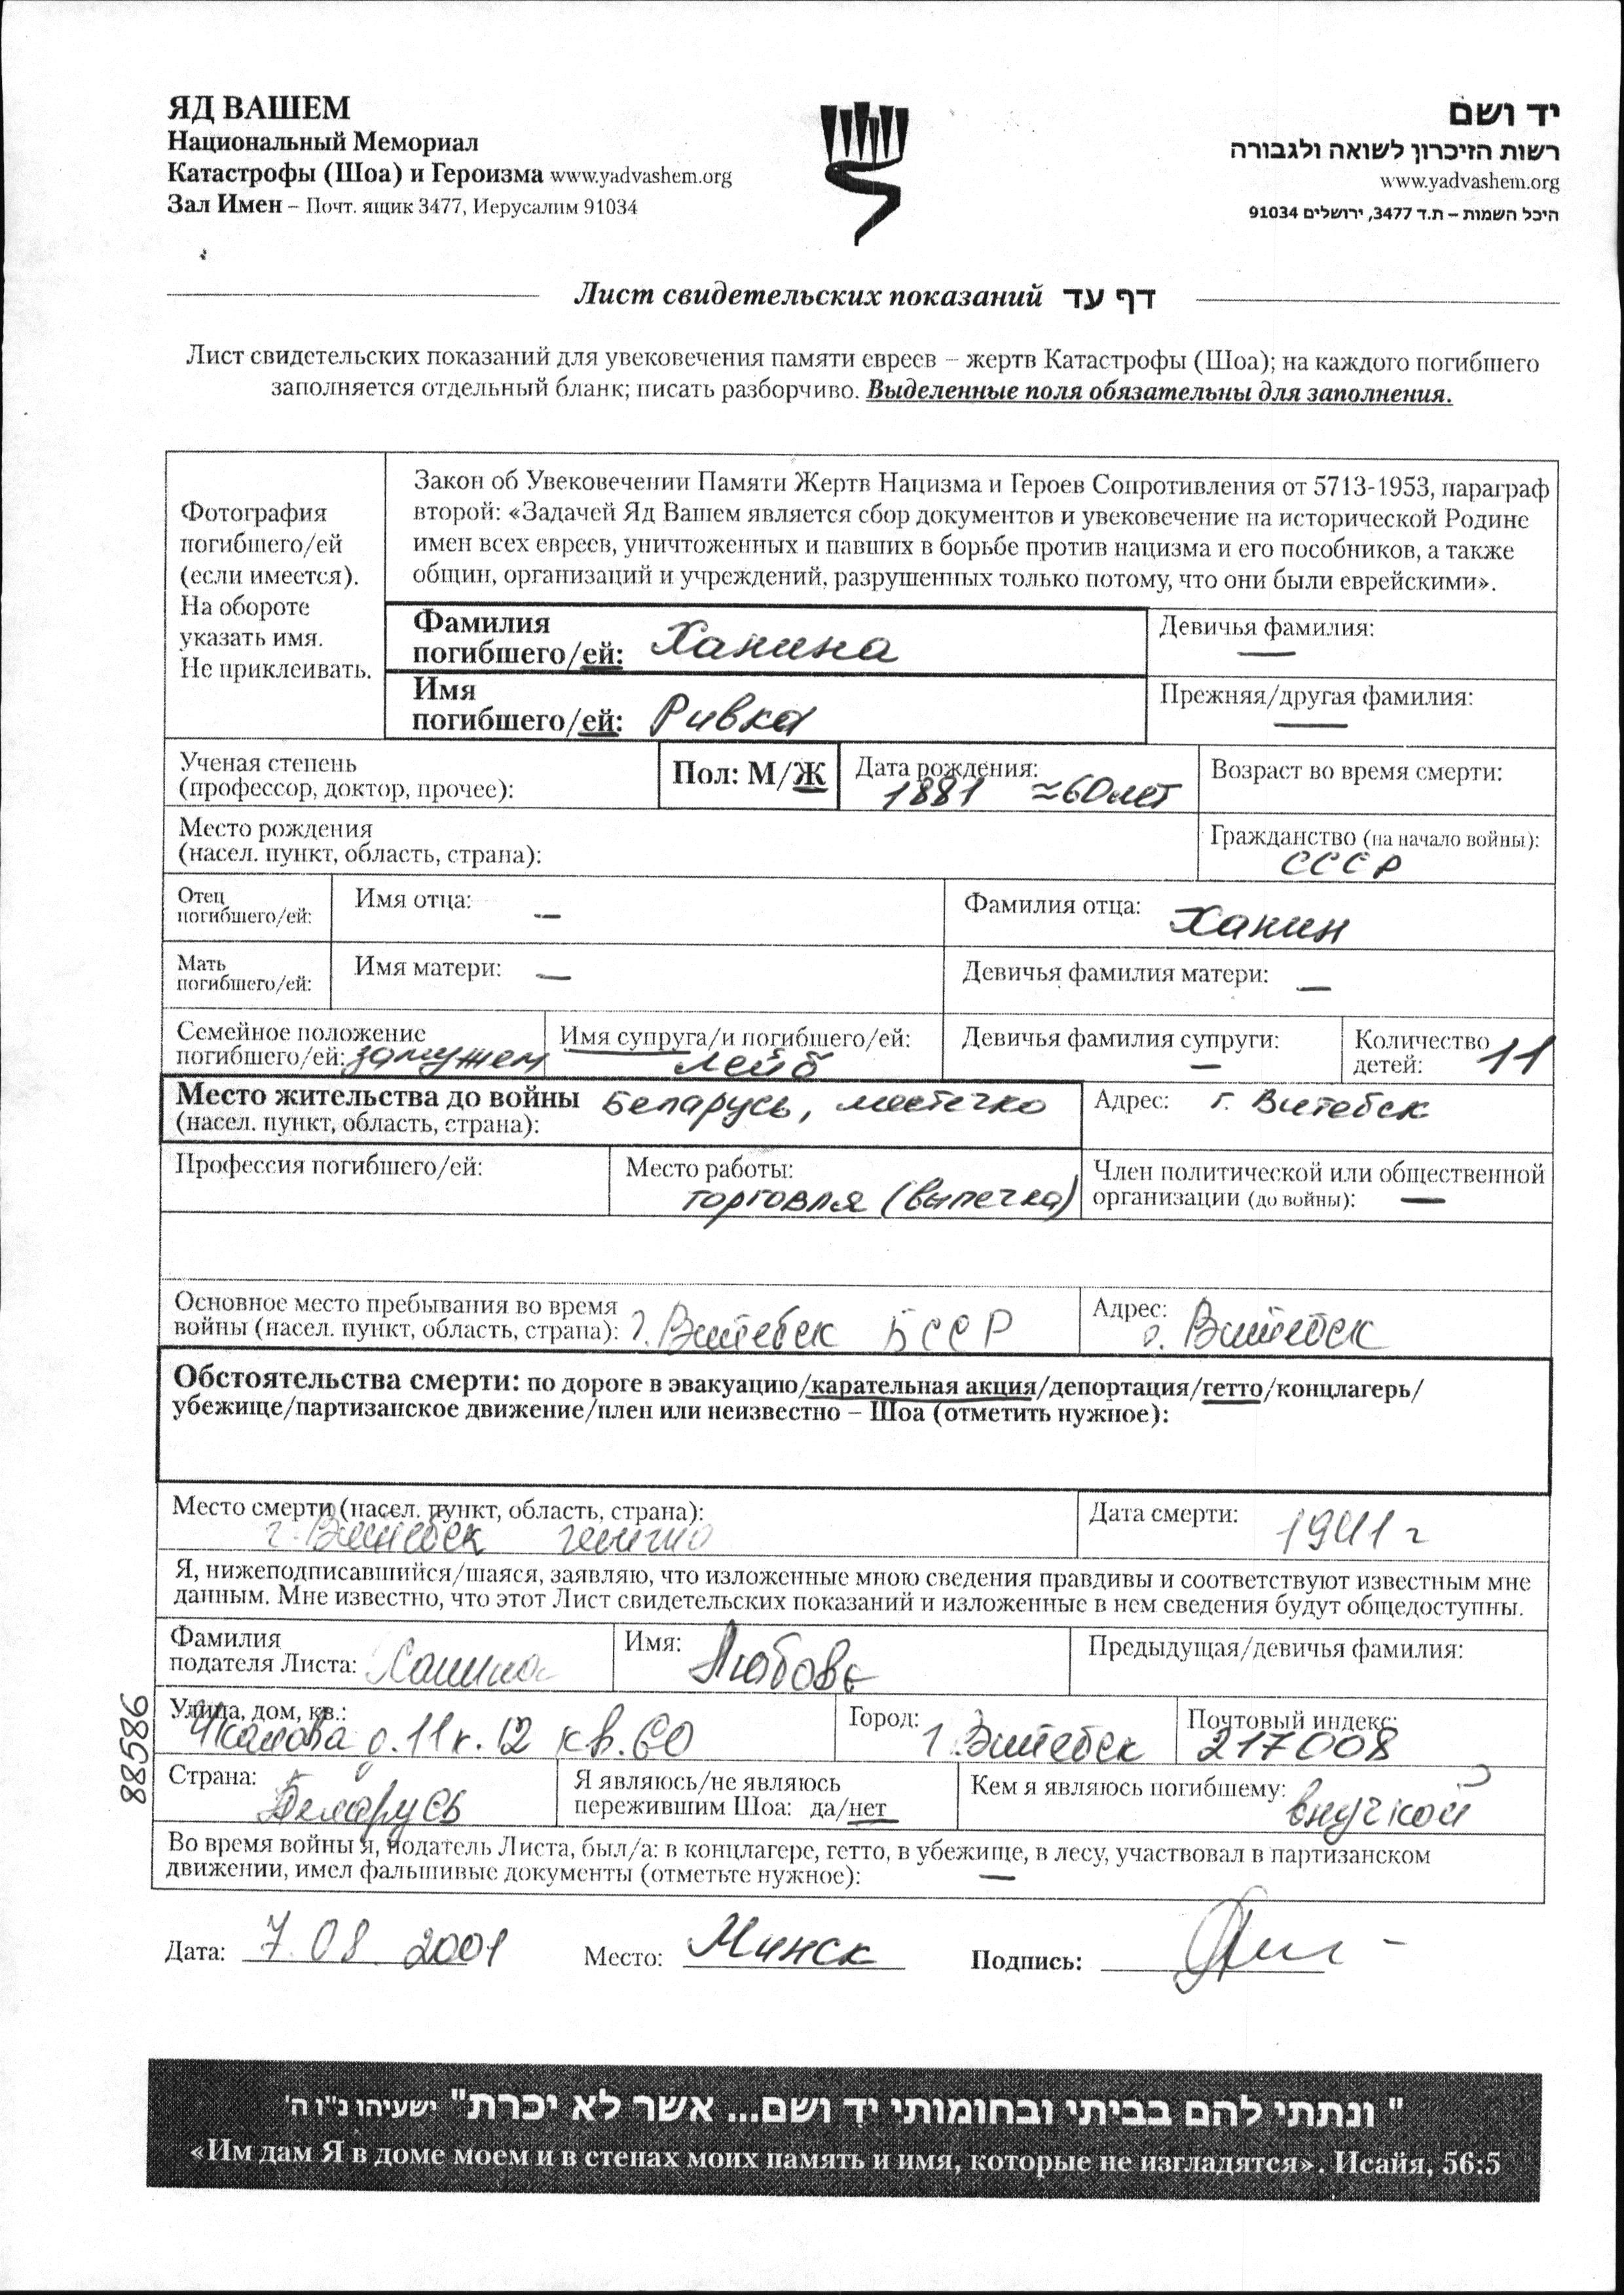 ЯД ВАШЕМ
Национальный Мемориал
Катастрофы (Шоа) и Героизма www.yadvashem.org
Зал Имен – Почт. ящик 3477, Иерусалим 91034
יד ושם
רשות הזיכרון לשואה ולגבורה
www.yadvashem.org
היכל השמות – ת.ד 3477, ירושלים 91034
Лист свидетельских показаний דף עד
Лист свидетельских показаний для увековечения памяти евреев – жертв Катастрофы (Шоа); на каждого погибшего
заполняется отдельный бланк; писать разборчиво. Выделенные поля обязательны для заполнения.
Фотография
погибшего/ей
(если имеется).
На обороте
указать имя.
Не приклеивать.
Закон об Увековечении Памяти Жертв Нацизма и Героев Сопротивления от 5713-1953, параграф
второй: «Задачей Яд Вашем является сбор документов и увековечение на исторической Родине
имен всех евреев, уничтоженных и павших в борьбе против нацизма и его пособников, а также
общин, организаций и учреждений, разрушенных только потому, что они были еврейскими».
Фамилия
погибшего/ей: Ханина
Девичья фамилия:
—
Имя
погибшего/ей: Ривка
Прежняя/другая фамилия:
—
Ученая степень
(профессор, доктор, прочее):
Пол: М/Ж
Дата рождения:
1881 ≈60 лет
Возраст во время смерти:
Место рождения
(насел. пункт, область, страна):
Гражданство (на начало войны):
СССР
Отец
погибшего/ей:
Имя отца: —
Фамилия отца: Ханин
Мать
погибшего/ей:
Имя матери: —
Девичья фамилия матери: —
Семейное положение
погибшего/ей: замужем
Имя супруга/и погибшего/ей:
Лейб
Девичья фамилия супруги:
—
Количество
детей: 11
Место жительства до войны Беларусь, местечко
(насел. пункт, область, страна):
Адрес: г. Витебск
Профессия погибшего/ей:
Место работы:
торговля (выпечка)
Член политической или общественной
организации (до войны): —
Основное место пребывания во время
войны (насел. пункт, область, страна): г. Витебск БССР
Адрес:
г. Витебск
Обстоятельства смерти: по дороге в эвакуацию/карательная акция/депортация/гетто/концлагерь/
убежище/партизанское движение/плен или неизвестно – Шоа (отметить нужное):
Место смерти (насел. пункт, область, страна):
г. Витебск
Дата смерти: 1941 г
Я, нижеподписавшийся/шаяся, заявляю, что изложенные мною сведения правдивы и соответствуют известным мне
данным. Мне известно, что этот Лист свидетельских показаний и изложенные в нем сведения будут общедоступны.
Фамилия
подателя Листа: Ханина
Имя: Любовь
Предыдущая/девичья фамилия:
Улица, дом, кв.:
Чкалова д. 11 к. 12 кв. 60
Город: г. Витебск
Почтовый индекс:
217008
Страна: Беларусь
Я являюсь/не являюсь
пережившим Шоа: да/нет
Кем я являюсь погибшему: внучкой
Во время войны я, податель Листа, был/а: в концлагере, гетто, в убежище, в лесу, участвовал в партизанском
движении, имел фальшивые документы (отметьте нужное): —
88586
Дата: 7.08 2001 Место: Минск Подпись:
" ונתתי להם בביתי ובחומותי יד ושם... אשר לא יכרת" ישעיהו נ"ו ה'
«Им дам Я в доме моем и в стенах моих память и имя, которые не изгладятся». Исайя, 56:5